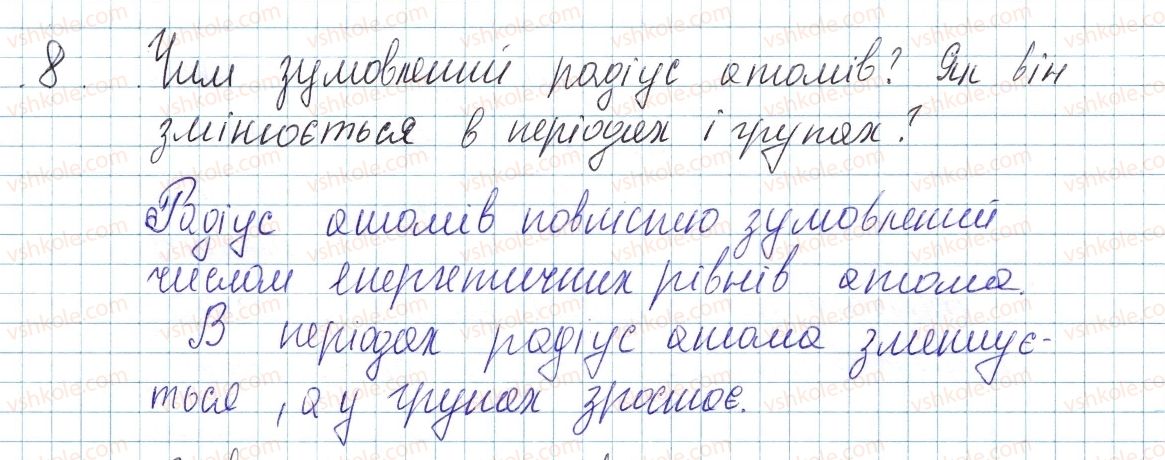 8. Чим зумовлений радіус атомів? Як він
змінюється в періодах і групах?
Радіус атомів повністю зумовлений
числом енергетичних рівнів атома.
В періодах радіус атома зменшує-
ться, а у групах зростає.